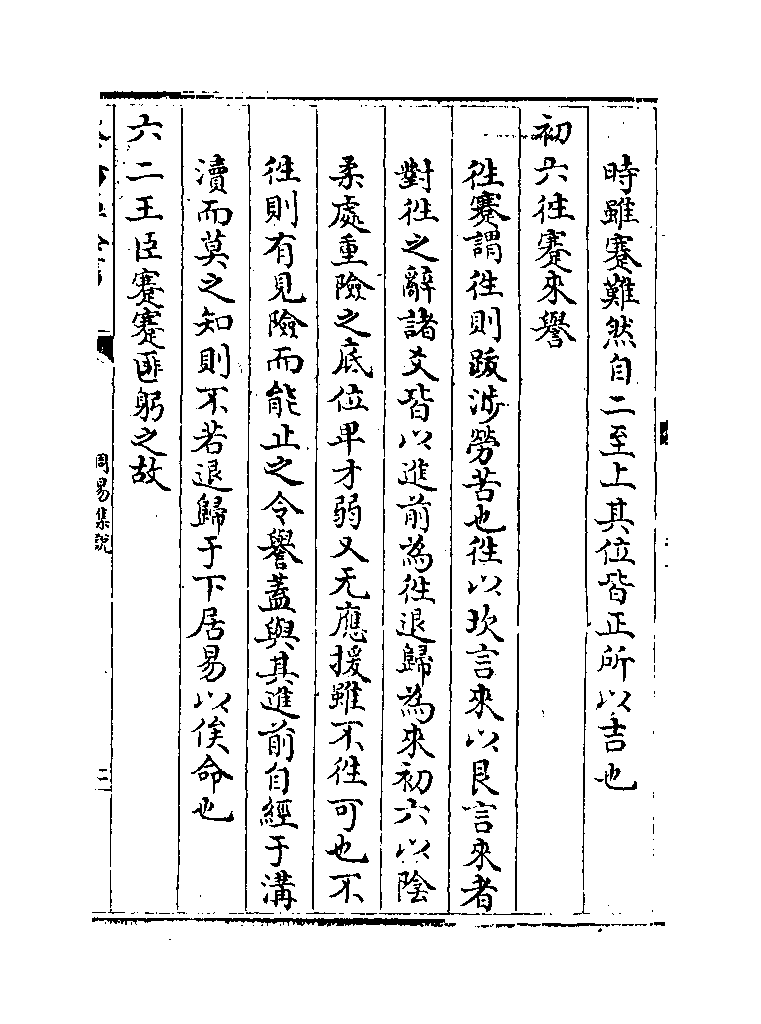 時雖蹇難然自二至上其位皆正所以吉也
初六往蹇來譽
往蹇謂往則跋涉勞苦也往以坎言來以艮言來者
對往之辭諸爻皆以進前為往退歸為來初六以陰
柔處重險之底位卑才弱又无應援雖不往可也不
往則有見險而能止之令譽蓋與其進前自經于溝
瀆而莫之知則不若退歸于下居易以俟命也
六二王臣蹇蹇匪躬之故
周易集說